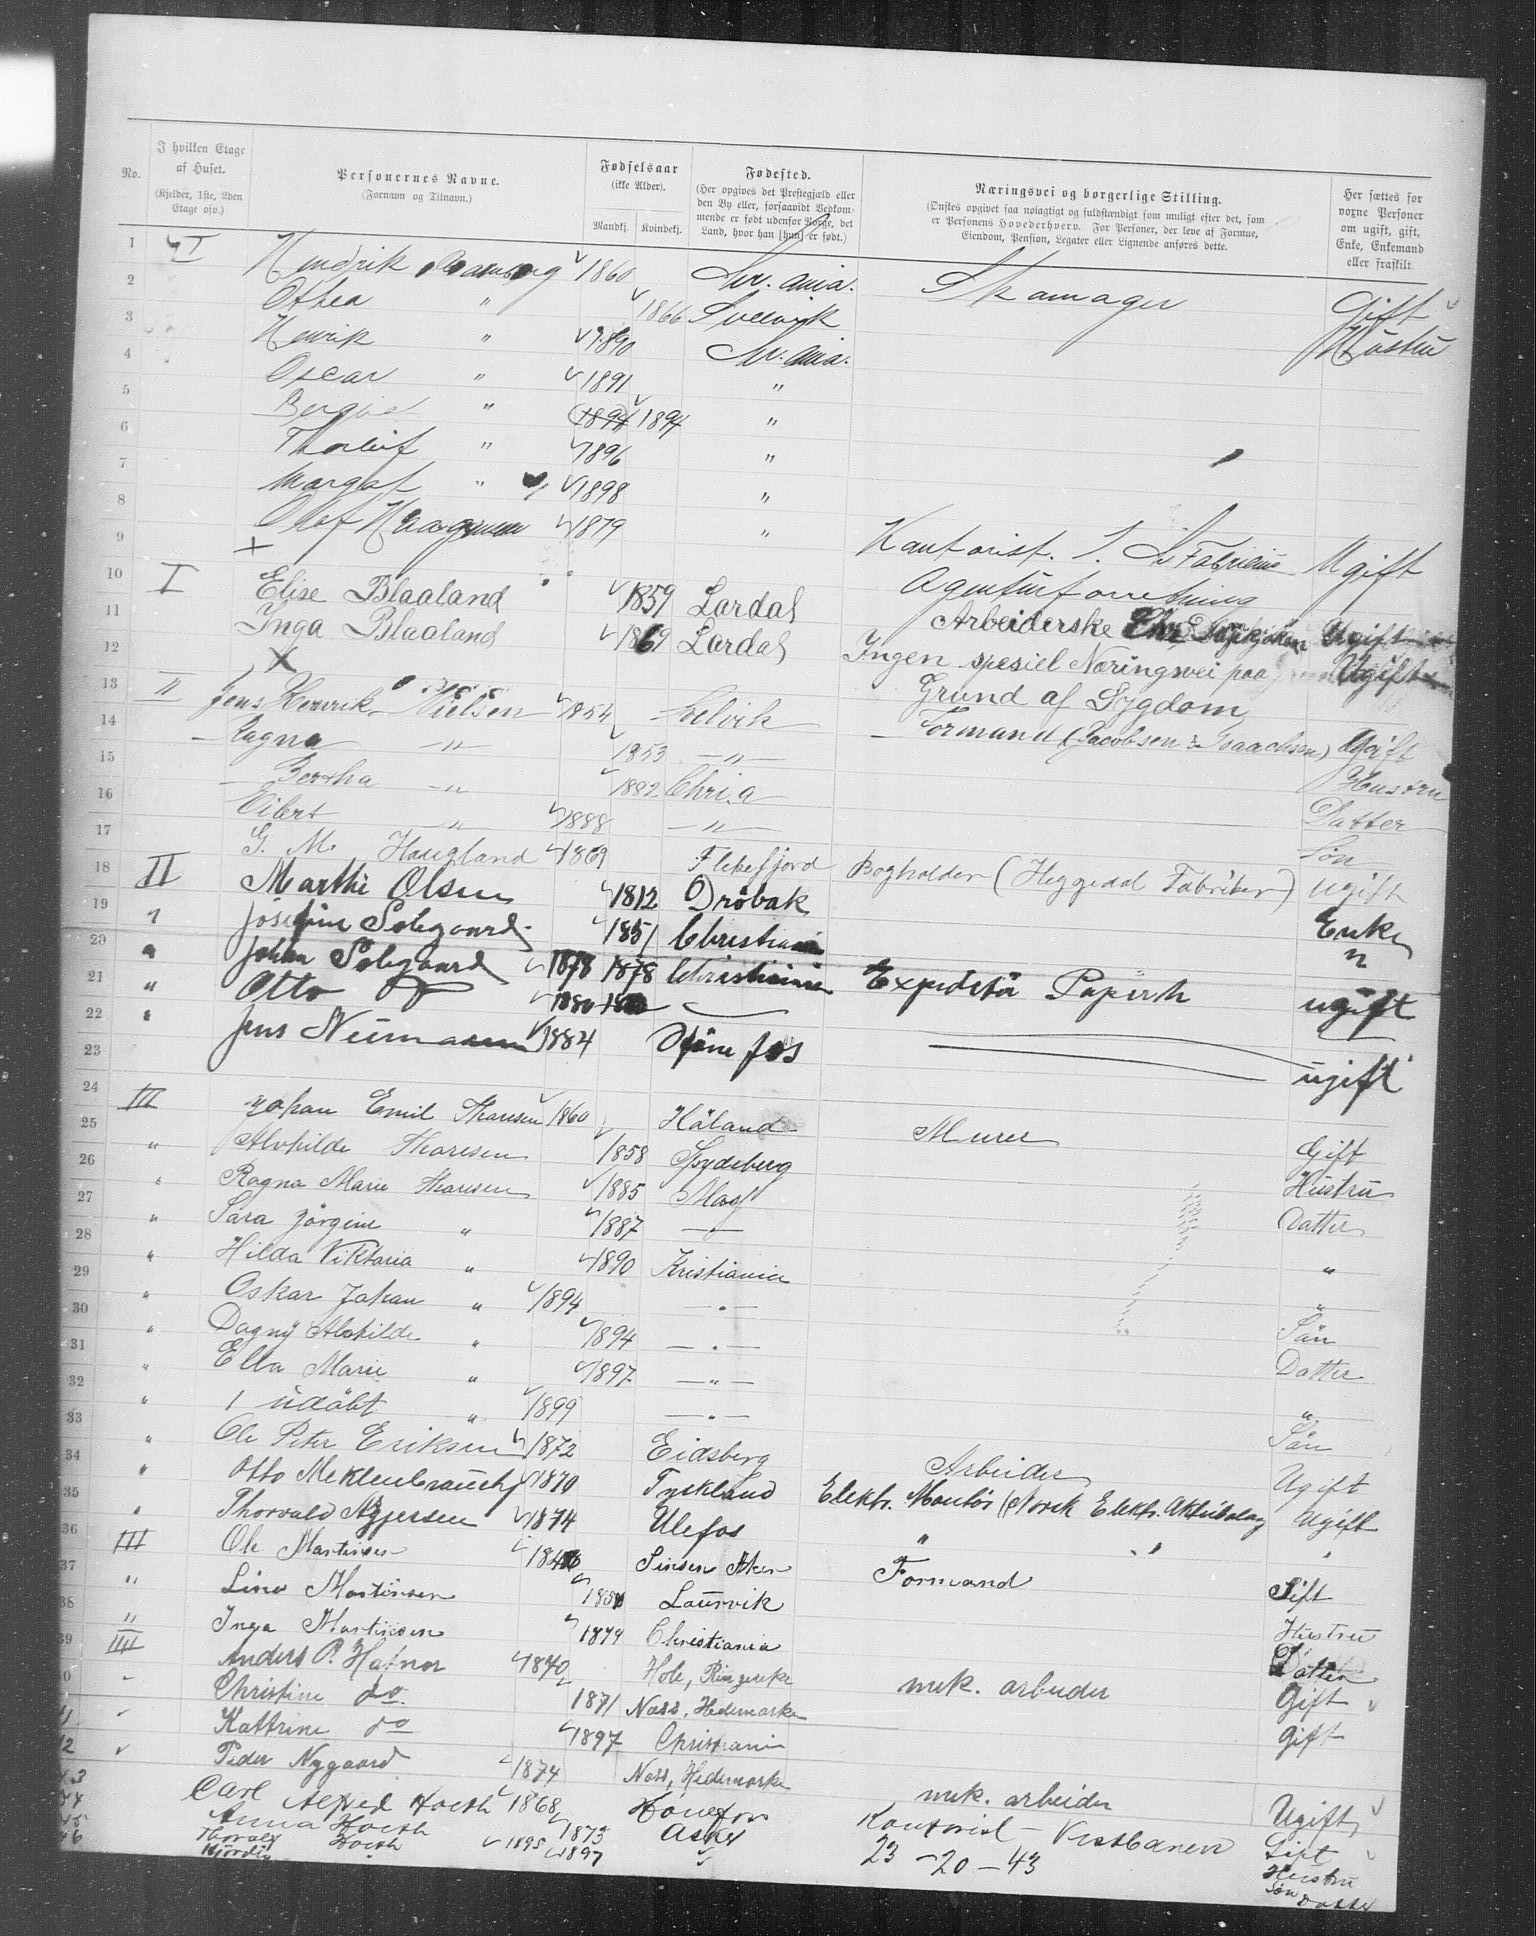 No.
I hvilken Etage af Huset.
(Kjelder, 1ste, 2den Etage osv.)
Personernes Navne.
(Fornavn og Tilnavn.)
Fødselsaar
(ikke Alder).
Mandkj. Kvindekj.
Fødested.
(Her opgives det Prestegjæld eller den By eller, forsaavidt Vedkommende er født udenfor Norge, det Land, hvor han [hun] er født.)
Næringsvei og borgerlige Stilling.
(Ønskes opgivet saa nøiagtigt og fuldstændigt som muligt efter det, som er Personens Hovederhverv. For Personer, der leve af Formue, Eiendom, Pension, Legater eller Lignende anføres dette.
Her sættes for voxne Personer om ugift, gift, Enke, Enkemand eller fraskilt.
1 I Hendrik 1860 Kr.ania. Skomager Gift
2 Othea " 1866 Svelvik Hustru
3 Henrik " 1890 Kr.ania.
4 Oscar " 1891 "
5 " 1894 1894 "
6 Thorleif " 1896 "
7 Margot " 1898 "
8 Olof 1879 " Kontorist. Ugift
9 Agenturforretning
10 I Elise Blaaland 1859 Lardal Arbeiderske Ugift
11 Inga Blaaland 1869 Lardal Ingen spesiel Næringsvei paa Ugift
12 Grund af Sygdom
13 " Jens Henrik Nielsen 1854 Svelvik Formand (Jacobsen & Isaachsen) Gift
14 Ragna —"— 1853 —"— Hustru
15 Bertha —"— 1882 Chri.a Datter
16 Eilert —"— 1888 —"— Søn
17 G. M. Haugland 1869 Flekefjord Bogholder (Heggedal Fabriker) ugift
18 II Marthe Olsen 1812 Drøbak Enke
19 " Josefine Solegaard 1851 Christiania "
20 " Johan Solegaard 1878 1878 Christiania Expeditør Papirh ugift
21 " Otto do 1880
22 " Jens Neumann 1884 Hønefos ugift
23
24 III Johan Emil Thoresen 1860 Håland Murer Gift
25 " Alvhilde Thoresen 1858 Spydeberg Hustru
26 " Ragna Marie Thoresen 1885 Moss Datter
27 " Sara Jørgine " 1887 — "
28 " Hilda Viktoria " 1890 Kristiania "
29 " Oskar Johan " 1894 —"— Søn
30 " Dagny Alvhilde " 1894 —"— Datter
31 " Ella Marie " 1897 —"— "
32 " 1 udøbt " 1899 —"— Søn
33 " Ole Peter Eriksen 1872 Eidsberg Arbeider Ugift
34 " Otto Meklenbrauch 1870 Tyskland Elektr. Montør (Norsk Elektr. Aktiebolag Ugift
35 " Thorvald Asjersen 1874 Ulefos " " "
36 III Ole Martinsen Sinsen Aker Formand Gift
37 " Line Martinsen Laurvik Hustru
38 " Inga Martinsen 1879 Christiania Datter
39 IIII Anders P. Hafnor 1870 Hole, Ringerike mek. arbeider Gift
" Christine do 1871 Næss, Hedemarken Gift
41 " Kattrine do 1897 Christiania
42 " Peder Nygaard 1874 Næss, Hedemarken mek. arbeider Ugift
43 Carl Alfred Hoeth 1868 Hønefos Kontorist - Vestbanen Gift
44 Anna Hoeth 1873 Asker 23 - 20 - 43 Hustru
45 Thoralf Hoeth 1895 " Søn
46 Hjørdis 1897 Datter